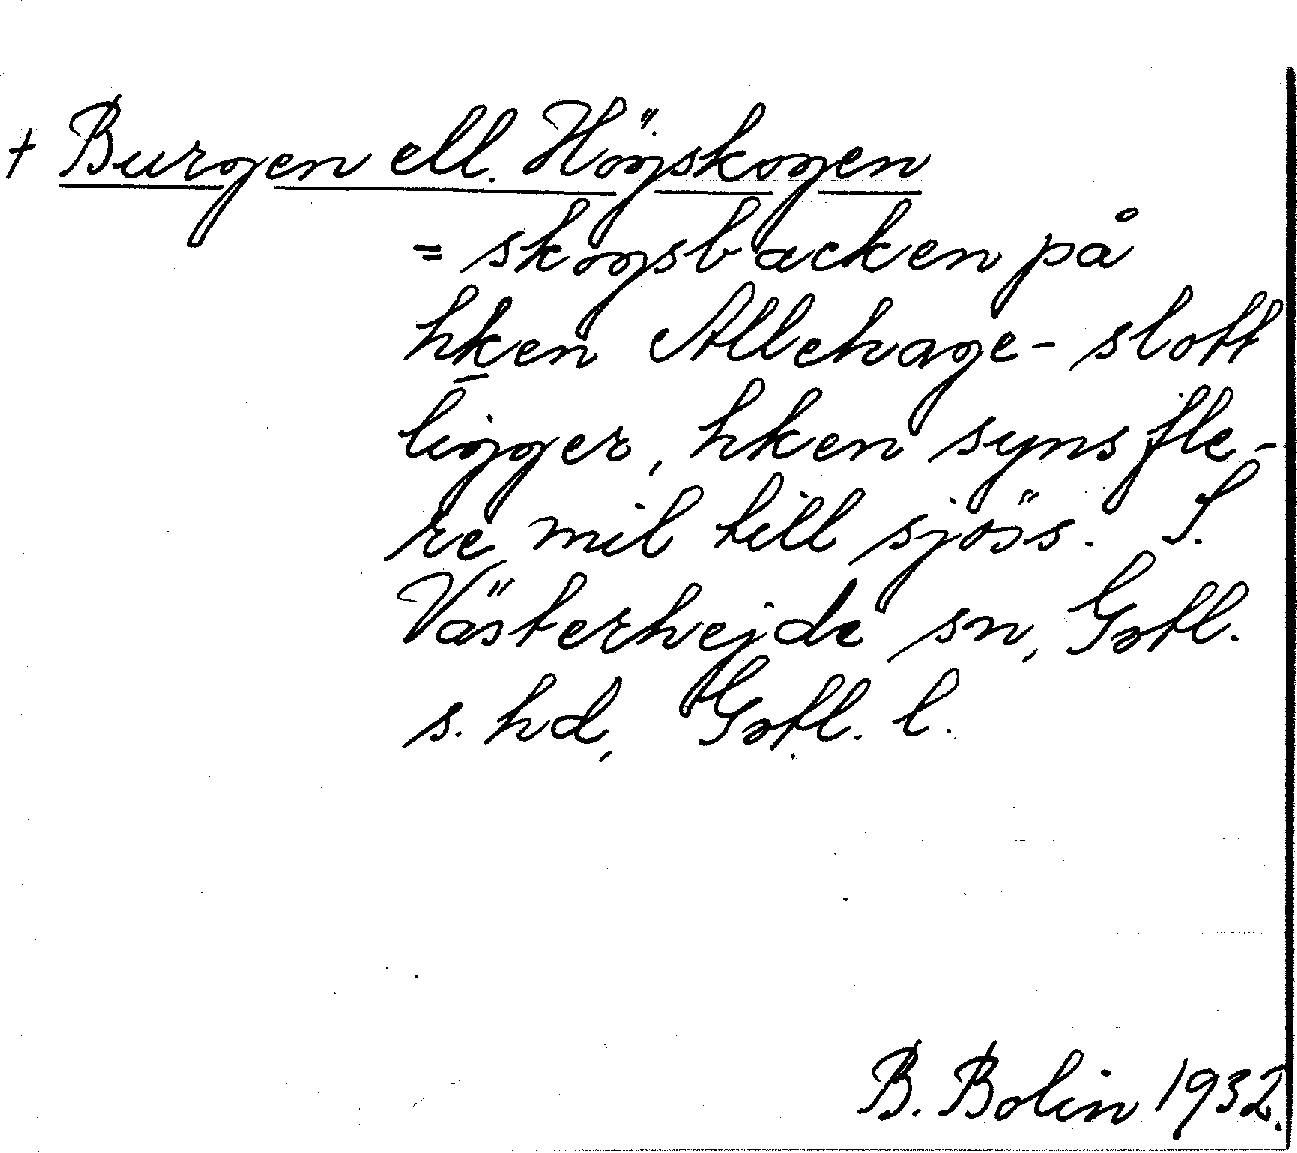 + Burgen ell. Högskogen
= skogsbacken på
hken Allehage- slott
ligger, hken syns fle-
re mil till sjöss. I.
Västerhejde sn, Gotl.
s. hd, Gotl. l.
B. Bolin 1932.